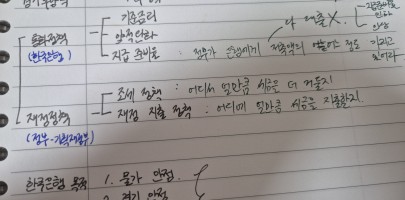 기준금리
통화정책 양적완화 다 대출X.
(한국은행) 지급 준비율 : 정부가 은행에게 저축액의 일정 정도 가지고
조세 정책 : 어디서 얼만큼 세금을 더 거둘지
재정정책 재정 지출 정책 : 어디에 얼만큼 세금을 지출할지
(정부-기획재정부)
한국은행 목적 1. 물가 안정
2. 경기 안정